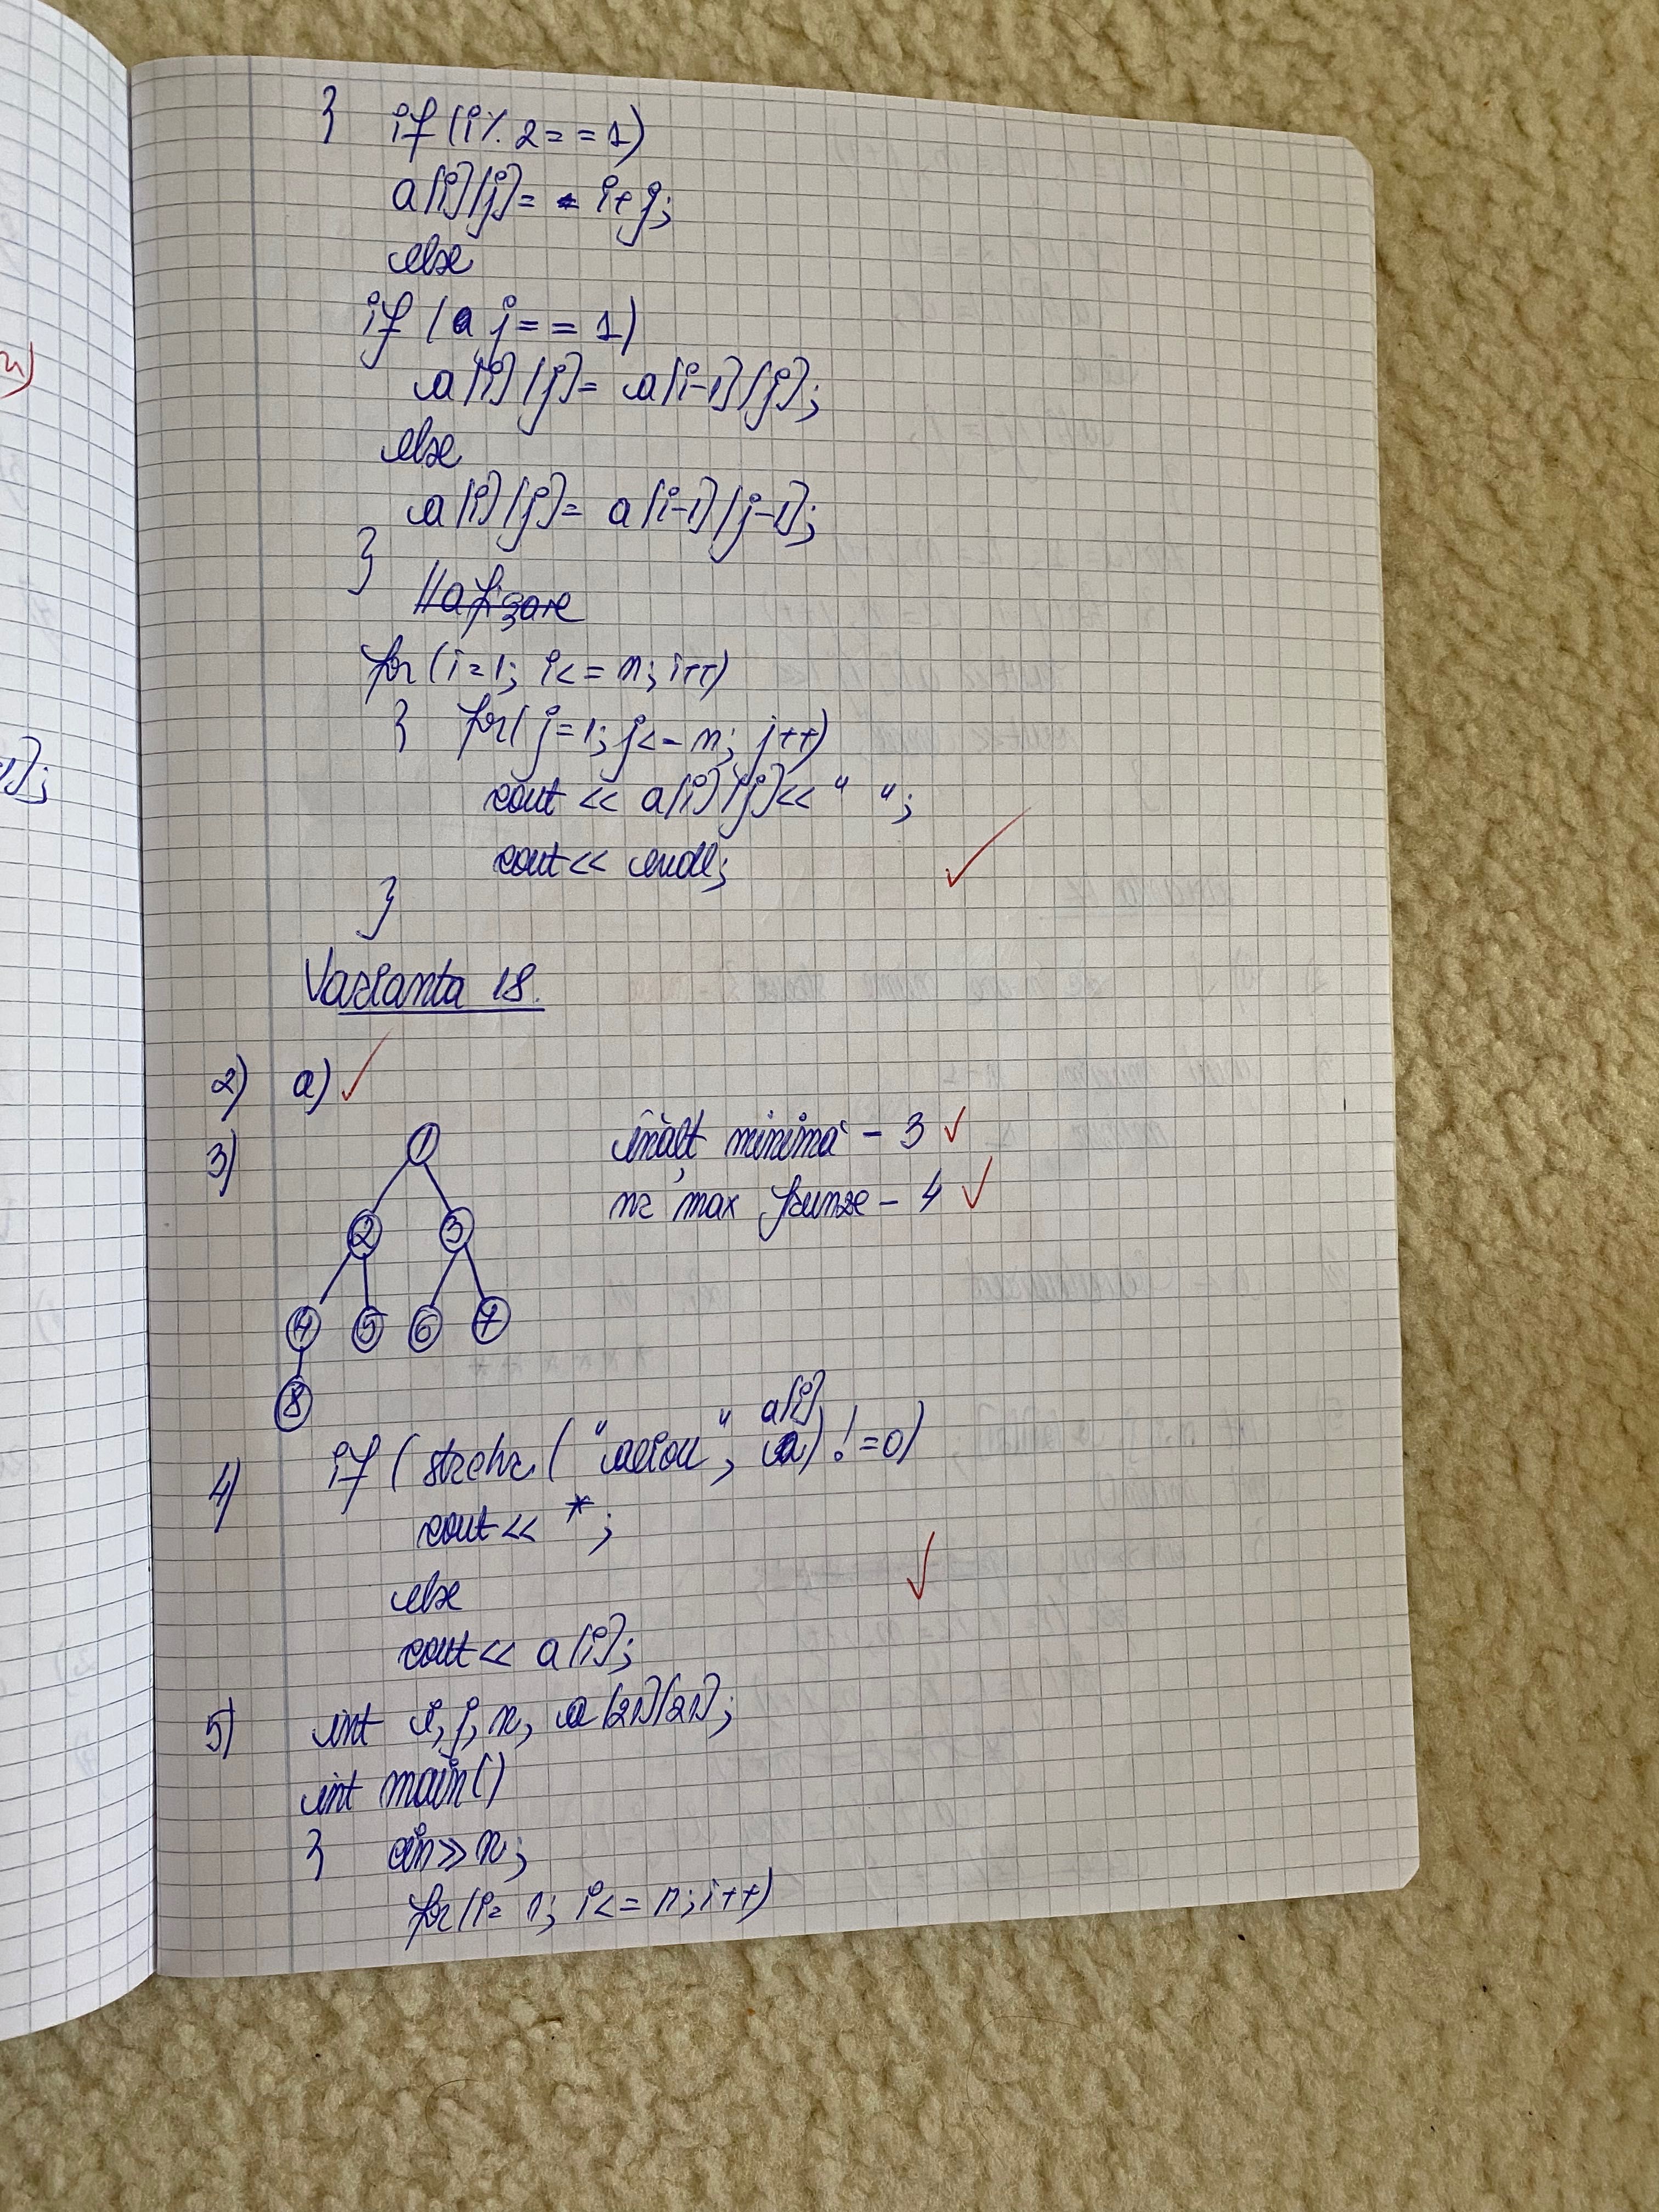 } if (i % 2 = = 1)
a[i][j]= i+j;
else
if ( j = = 1)
a[i][j]= a[i-1][j];
else
a[i][j]= a[i-1][j-1];
}
//afișare
for (i=1; i<= n; i++)
} for( j=1; j<= n; j++)
cout << a[i][j]<< " ";
cout << endl;
}
Varianta 18.
2) a)
3) 1
înălț minimă - 3
nr max frunze - 4
2 3
4 5 6 7
8
a[i]
4) if ( strchr ( "aeiou", ) != 0)
cout << *;
else
cout << a[i];
5) int i, j, n, a[21][21];
int main()
} cin >> n;
for (i= 1; i<= n; i++)
];